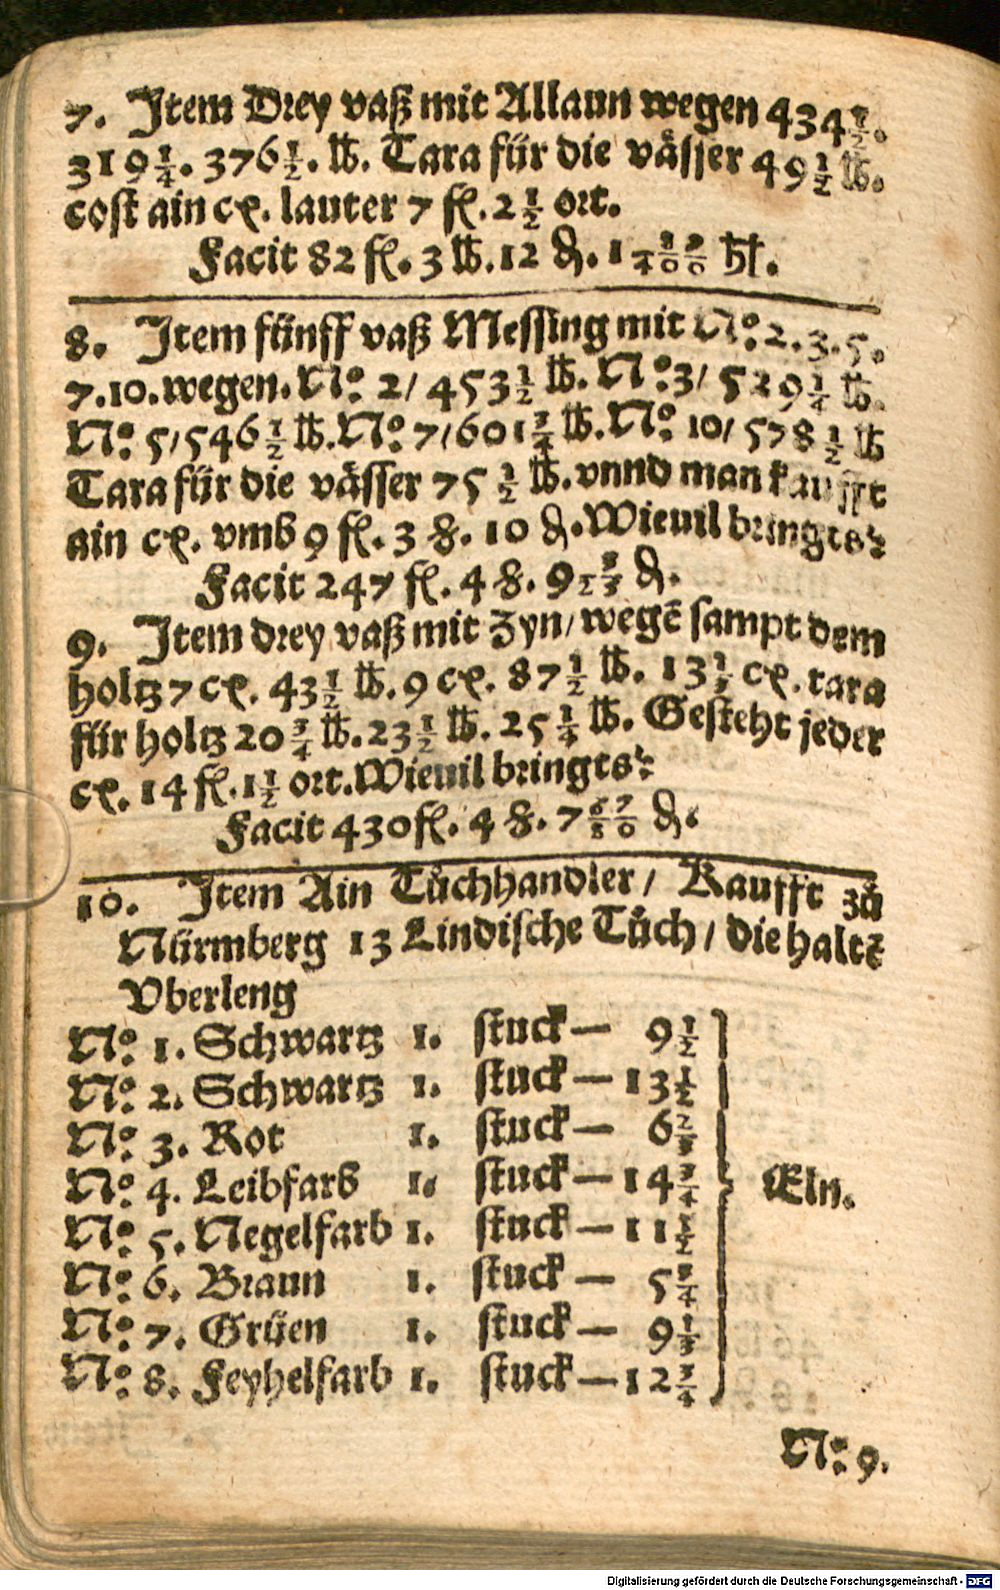 7. Item Drey vaß mit Allaun wegen 434 1/2.
319 1/4. 376 1/2. ℔. Tara für die väſſer 49 1/2 ℔.
coſt ain cꝫ. lauter 7 fl. 2 1/2 ort.
Facit 82 fl. 3 ℔. 12 ₰. 1 hl.
8. Item fünff vaß Meſſing mit No: 2. 3. 5.
7. 10. wegen. No: 2/ 453 1/2 ℔. No: 3/ 529 1/4 ℔.
No: 5/ 546 1/2 ℔. No: 7/ 601 3/4 ℔. No: 10/ 578 1/2 ℔
Tara für die väſſer 75 1/2 ℔. vnnd man kaufft
ain cꝫ. vmb 9 fl. 3 ß. 10 ₰. Wieuil bringts?
Facit 247 fl. 4 ß. 9 ₰.
9. Item drey vaß mit Zyn/ wegē ſampt dem
holtz 7 cꝫ. 43 1/2 ℔. 9 cꝫ. 87 1/2 ℔. 13 cꝫ. tara
für holtz 20 3/4 ℔. 23 1/2 ℔. 25 1/4 ℔. Geſteht jeder
cꝫ. 14 fl. 1 1/2 ort. Wieuil bringts?
Facit 430 fl. 4 ß. 7 67/80 ₰.
10. Item Ain Tůchhandler/ Kaufft zů
Nürmberg 13 Lindiſche Tůch/ die haltē
Vberleng
No: 1. Schwartz 1. ſtuck — 9 1/2
No: 2. Schwartz 1. ſtuck — 13 1/2
No: 3. Rot 1. ſtuck — 6 2/3
No: 4. Leibfarb 1. ſtuck — 14 3/4 Eln.
No: 5. Negelfarb 1. ſtuck — 11 1/2
No: 6. Braun 1. ſtuck — 5 3/4
No: 7. Grüen 1. ſtuck — 9 1/3
No: 8. Feyhelfarb 1. ſtuck — 12 3/4
No: 9.
Digitalisierung gefördert durch die Deutsche Forschungsgemeinschaft - DFG